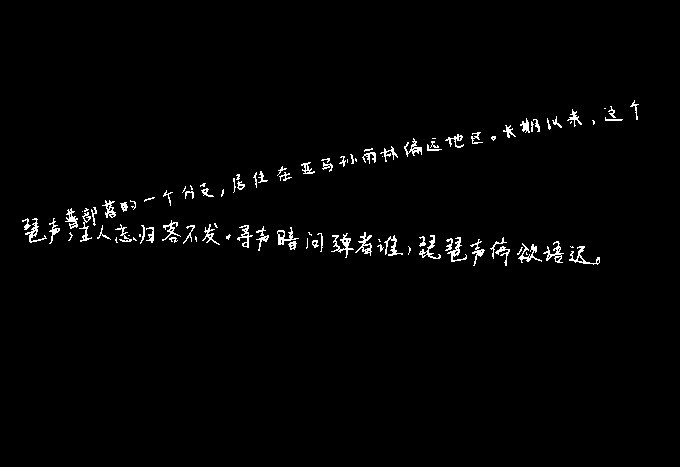 普部落的一个分支,居住在亚马孙雨林偏远地区。长期以来,这个
琶声,主人忘归客不发。寻声暗问弹者谁,琵琶声停欲语迟。